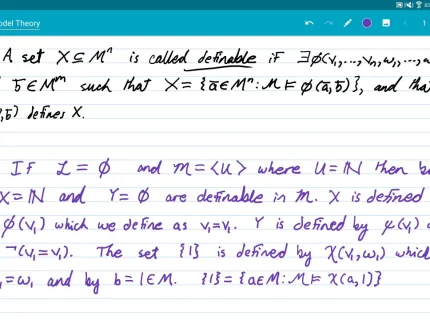 odel Theory
1
A set X ⊆ Mⁿ is called definable if ∃φ(v₁,...,vₙ,w₁,...,w
b̄ ∈ Mᵐ such that X = {ā ∈ Mⁿ : M ⊨ φ(ā,b̄)}, and tha
,b̄) defines X.
If L = ∅ and M = <U> where U = ℕ then b
X = ℕ and Y = ∅ are definable in M. X is defined
φ(v₁) which we define as v₁=v₁. Y is defined by ψ(v₁)
¬(v₁=v₁). The set {1} is defined by χ(v₁,w₁) whic
₁=w₁ and by b = 1 ∈ M. {1} = {a ∈ M : M ⊨ χ(a,1)}